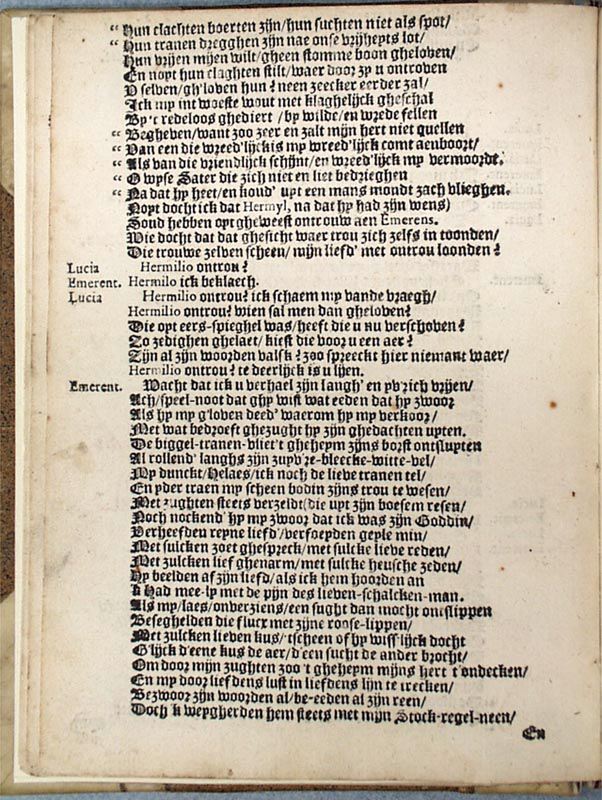 “ Hun clachten boerten zijn/hun suchten niet als spot/
“ Hun tranen dregghen zijn nae onse vrijheyts lot/
Hun vrijen mijen wilt/gheen stomme boon gheloven/
En nopt hun claghten stilt/waer door zy u ontroven
U selven/gh'loven hun? neen zeecker eerder zal/
Ick my int woeste wout met klaghelijck gheschal
By 't redeloos ghediert / by wilde/en wrede fellen
“ Begheven/want zoo zeer en zalt mijn hert niet quellen
“ Van een die wreed'lijck is my wreed'lijck comt aenvoort/
“ Als van die vriendlijck schijnt/en wreed'lijck my vermoordt.
“ O wyse Sater die zich niet en liet bedrieghen
“ Na dat hy heet/en koud' uyt een mans mondt zach vlieghen.
Noyt docht ick dat Hermyl, na dat hy had zijn wens)
Soud hebben oyt gheweest ontrouw aen Emerens.
Wie docht dat dat ghesicht waer trou zich zelfs in toonden/
Die trouwe zelven scheen/ mijn liefd' met ontrou loonden?
Lucia Hermilio ontrou?
Emerent. Hermilo ick beklaech.
Lucia Hermilio ontrou? ick schaem my vande vraegh/
Hermilio ontrou? wien sal men dan gheloven?
Die opt eers-spieghel was/heeft die u nu verschoven?
Zo zedighen ghelaet/ kiest die voor u een aer?
Zijn al zijn woorden valsk? zoo spreeckt hier niemant waer/
Hermilio ontrou? te deerlijck is u lijen.
Emerent. Wacht dat ick u verhael zijn langh' en yv'rich vrijen/
Ach/speel-noot dat ghy wist wat eeden dat hy zwoor
Als hy my g'loven deed' waerom hy my verkoor/
Met wat bedroeft ghezught hy zijn ghedachten uyten.
De biggel-tranen-vliet 't gheheym zijns borst ontsluyten
Al rollend' langhs zijn zuyv're-bleecke-witte-vel/
My dunckt/Helaes/ick noch de lieve tranen tel/
En yder traen my scheen bodin zijns trou te wesen/
Met zughten steets verzeldt(die uyt zijn boesem resen/
Noch nockend' hy my zwoor dat ick was zijn Goddin/
Verheefden reyne liefd'/verfoeyden geyle min/
Met sulcken zoet ghespreck/met sulcke lieve reden/
Met zulcken lief ghenarm/met sulcke heusche zeden/
Hy beelden af zijn liefd/als ick hem hoorden an
'k Had mee-ly met de pijn des lieven-schalcken-man.
Als my/laes/onverziens/een sught dan mocht ontslippen
Beseghelden die flucx met zijne roose-lippen/
Met zulcken lieven kus/'tscheen of hy wiss'lijck docht
G'lijck d'eene kus de aer/d'een sucht de ander brocht/
Om door mijn zughten zoo 't gheheym mijns hert t'ondecken/
En my door liefdens lust in liefdens lijn te trecken/
Bezwoor zijn woorden al/be-eeden al zijn reen/
Doch 'k weygherden hem steets met mijn Stock-regel-neen/
En